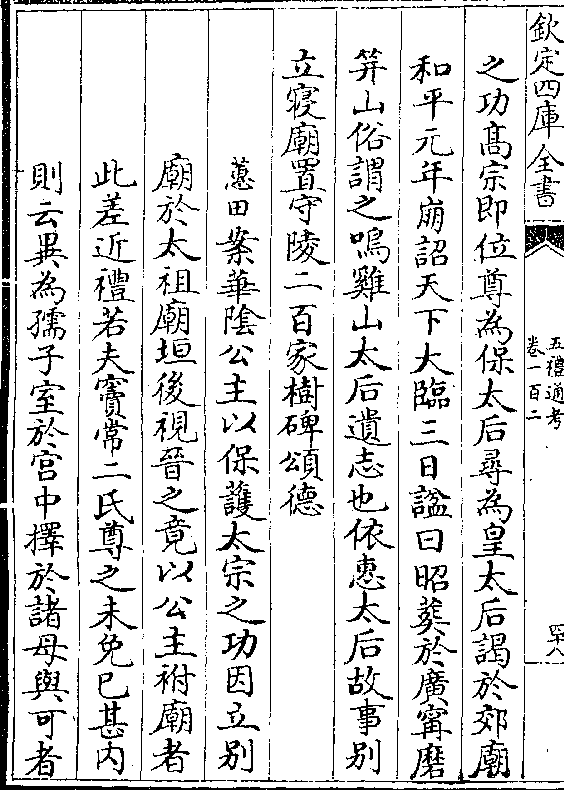 欽定四庫全書
五禮通考
卷一百二
四十八
之功髙宗即位尊為保太后尋為皇太后謁於郊廟
和平元年崩詔天下大臨三日諡曰昭葬於廣寗磨
笄山俗謂之鳴雞山太后遺志也依惠太后故事别
立寝廟置守陵二百家樹碑頌德
蕙田案華陰公主以保䕶太宗之功因立别
廟於太祖廟垣後視晉之竟以公主祔廟者
此差近禮若夫竇常二氏尊之未免已甚内
則云異為孺子室於宫中擇於諸母與可者